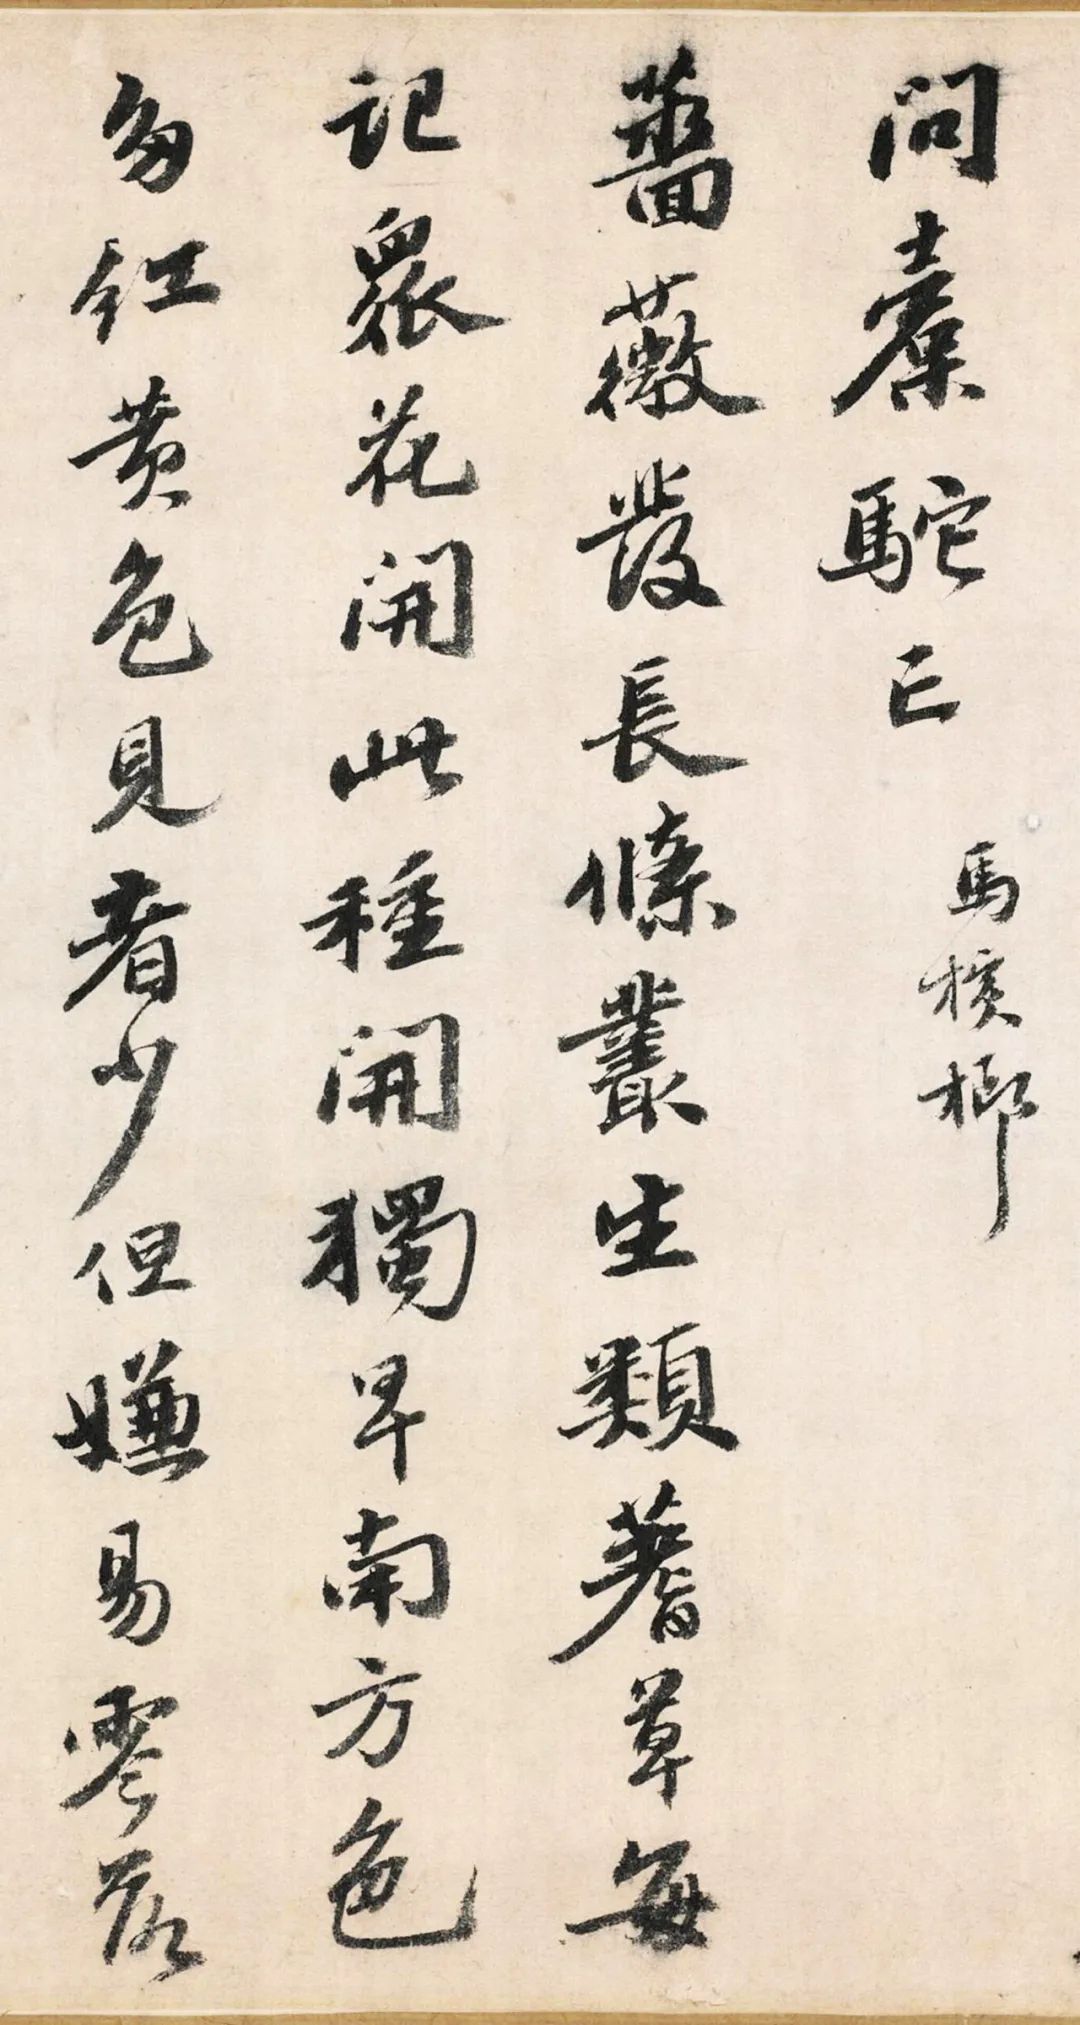 問橐駝亡
馬檳榔
薔薇發長條叢生類蓍草每
記衆花開此種開獨早南方色
多紅黄色見者少但嫌易零落